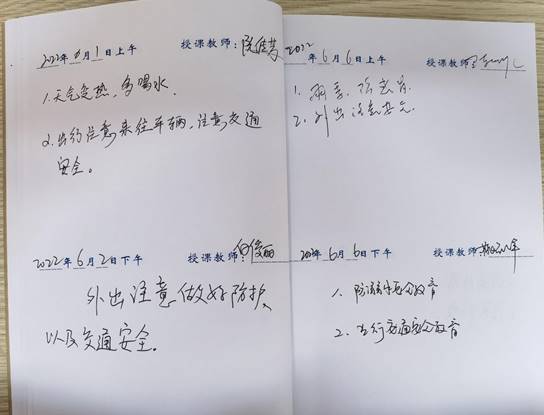 2022年6月1日上午 授课教师:
1.天气炎热,多喝水.
2.出行注意来往车辆,注意交通
安全。
2022年6月2日下午 授课教师:
外出注意做好防护
以及交通安全。
2022年6月6日上午 授课教师:
1.
2.外出注意安全.
2022年6月6日下午 授课教师:
1.防溺水安全教育
2.出行交通安全教育